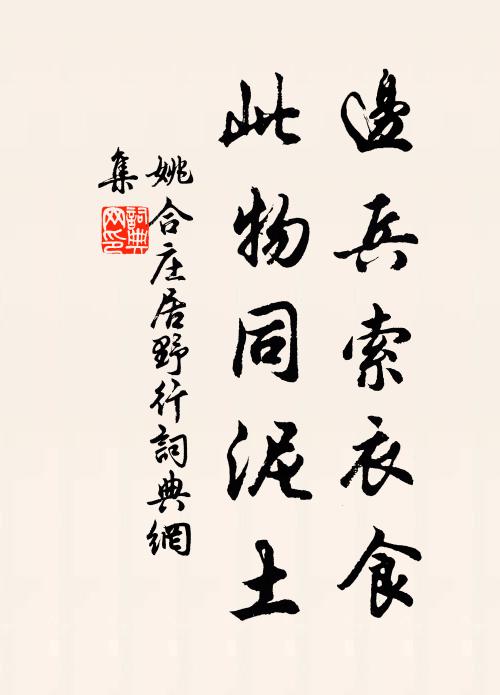 邊兵索衣食
此物同泥土
姚合庄居野行詞典網
集
詞典網印